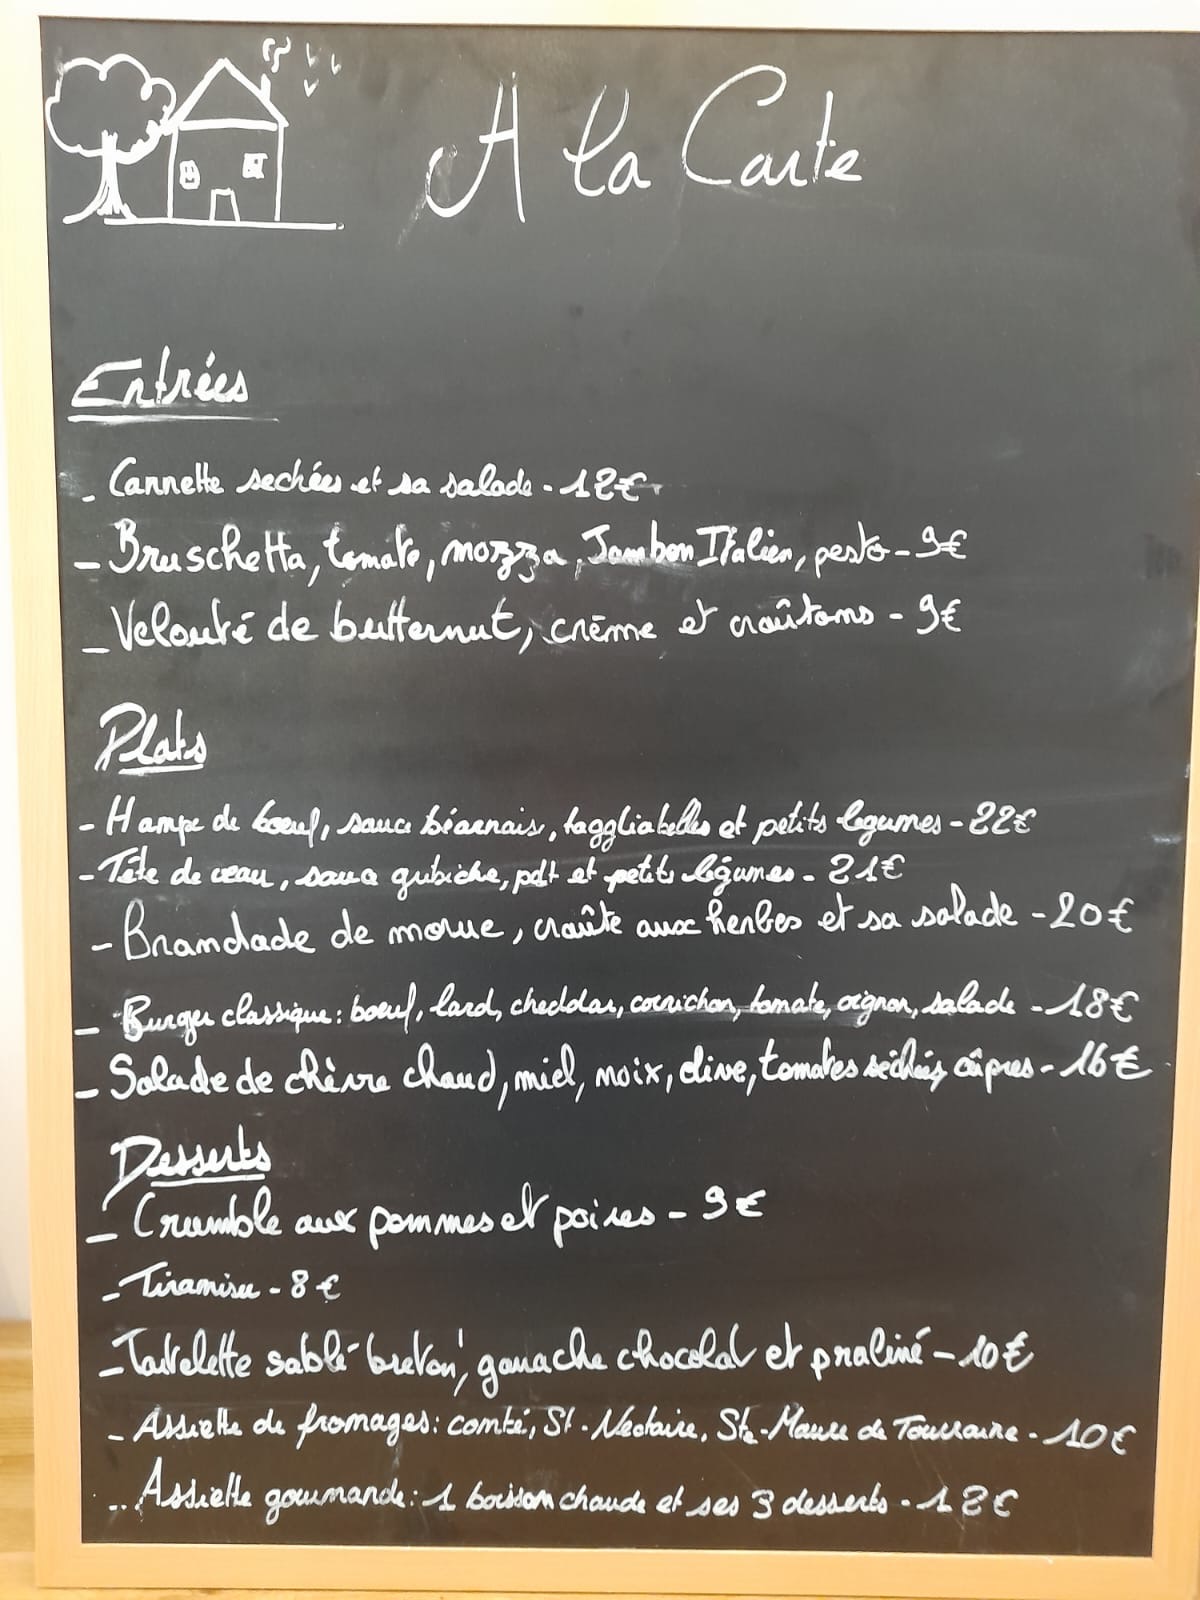 A la Carte
Entrées
- Cannette sechées et sa salade - 12€
- Bruschetta, tomate, mozza, Jambon Italien, pesto - 9€
- Velouté de butternut, crème et croûtons - 9€
Plats
- Hampe de boeuf, sauce béarnais, taggliatelles et petits légumes - 22€
- Tête de veau, sauce gribiche, pdt et petits légumes - 21€
- Brandade de morue, croûte aux herbes et sa salade - 20€
- Burger classique : boeuf, lard, cheddar, cornichon, tomate, oignon, salade - 18€
- Salade de chèvre chaud, miel, noix, olive, tomates séchées, câpres - 16€
Desserts
- Crumble aux pommes et poires - 9€
- Tiramisu - 8€
- Tartelette sablé breton, ganache chocolat et praliné - 10€
- Assiette de fromages : comté, St-Nectaire, Ste-Maure de Touraine - 10€
- Assiette gourmande : 1 boisson chaude et ses 3 desserts - 12€